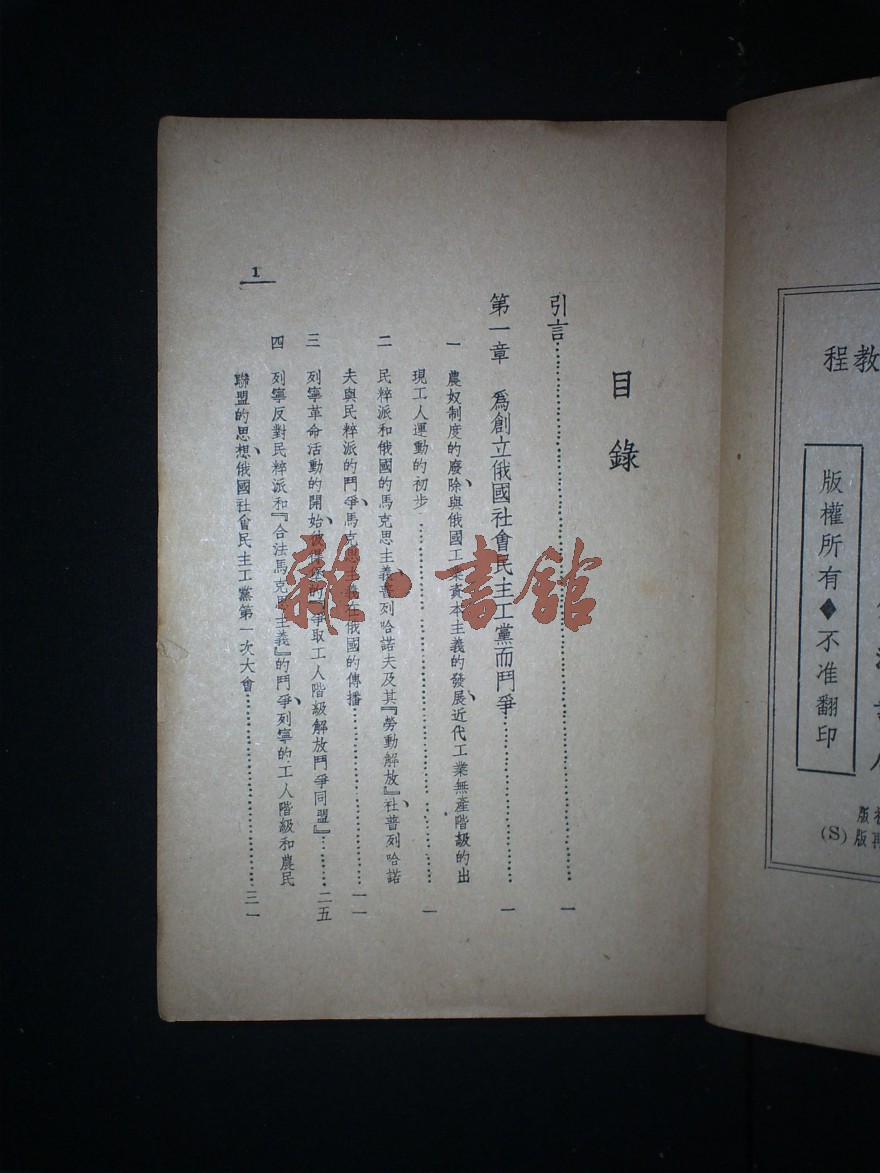 教程
版權所有◆不准翻印
目錄
引言……一
第一章 為創立俄國社會民主工黨而鬥爭……一
一 農奴制度的廢除與俄國工業資本主義的發展、近代工業無產階級的出
現、工人運動的初步……一
二 民粹派和俄國的馬克思主義、普列哈諾夫及其『勞動解放』社、普列哈諾
夫與民粹派的鬥爭、馬克思主義在俄國的傳播……一一
三 列寧革命活動的開始、彼得堡的『爭取工人階級解放鬥爭同盟』……二五
四 列寧反對民粹派和『合法馬克思主義』的鬥爭、列寧的工人階級和農民
聯盟的思想、俄國社會民主工黨第一次大會……三一
1
雜·書館